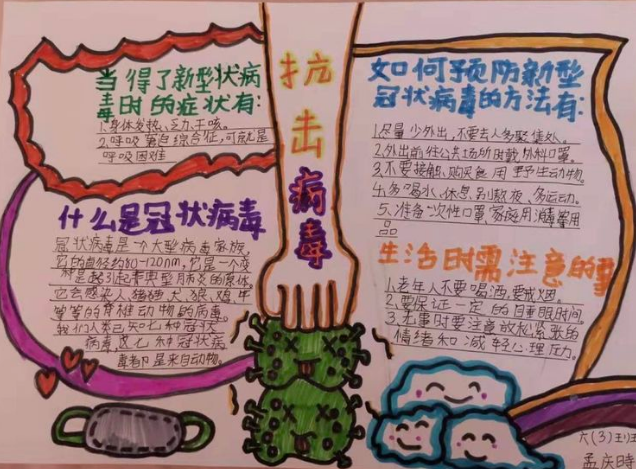 当得了新型状病
毒时的症状有:
1.身体发热、乏力、干咳。
2.呼吸窘迫综合征,可就是
呼吸困难
什么是冠状病毒
冠状病毒是一个大型病毒家族,
它的直径约80-120nm,它是一个变
是引起非典型肺炎的原体
它会感染人、猫、猪、犬、狼、鸡、牛
等等的脊椎动物的病毒。
我们人类已知七种冠状
病毒这七种冠状病
毒都是来自动物。
抗击病毒
如何预防新型
冠状病毒的方法有:
1.尽量少外出,不要去人多聚集处。
2.外出前往公共场所时戴外科口罩。
3.不要接触、购买食用野生动物。
4.多喝水、休息、别熬夜、多运动。
5、准备一次性口罩,家庭用消毒用
品
生活时需注意的事
1.老年人不要喝酒,要戒烟。
2.要保证一定的睡眠时间。
3.无事时要注意放松紧张的
情绪和减轻心理压力。
六(3)班
孟庆